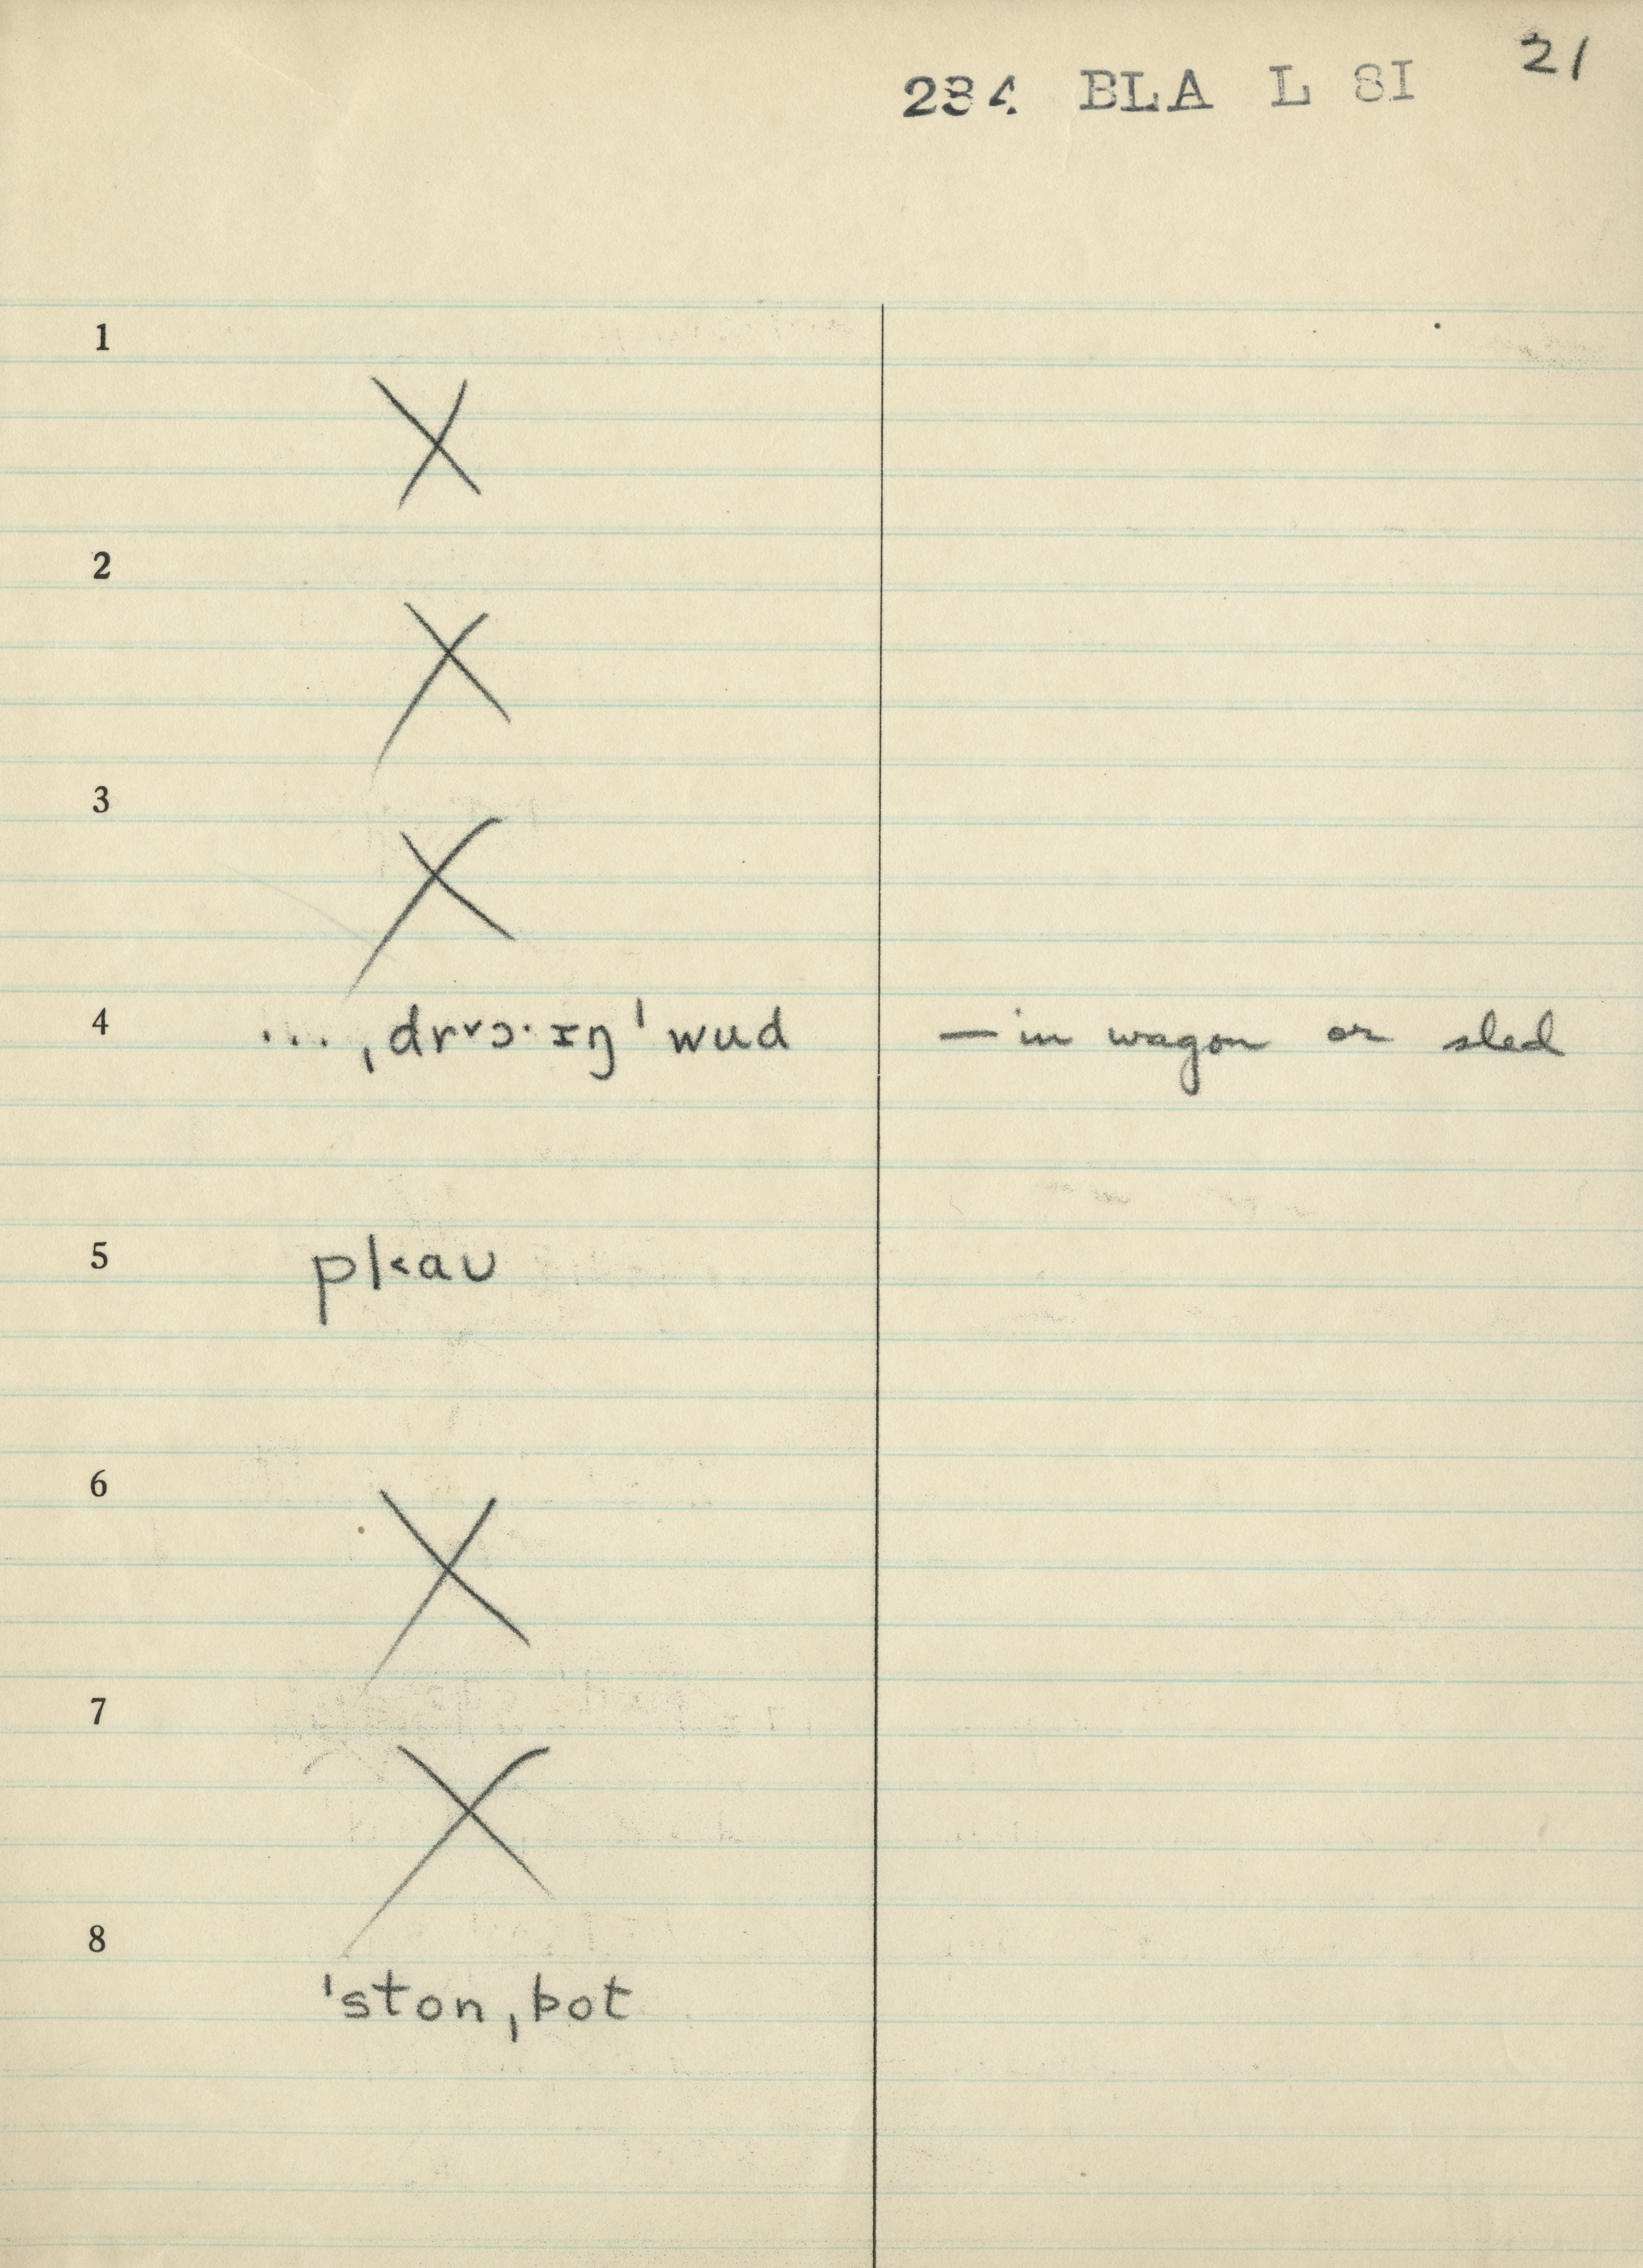 21
234 BLA L SI
1
X
2
X
3
X
4 ... ˌdrɤɔ·ɪŋ ˈwud — in wagon or sled
5 pl˂aʊ
6
X
7
X
8
ˈston ˌbot